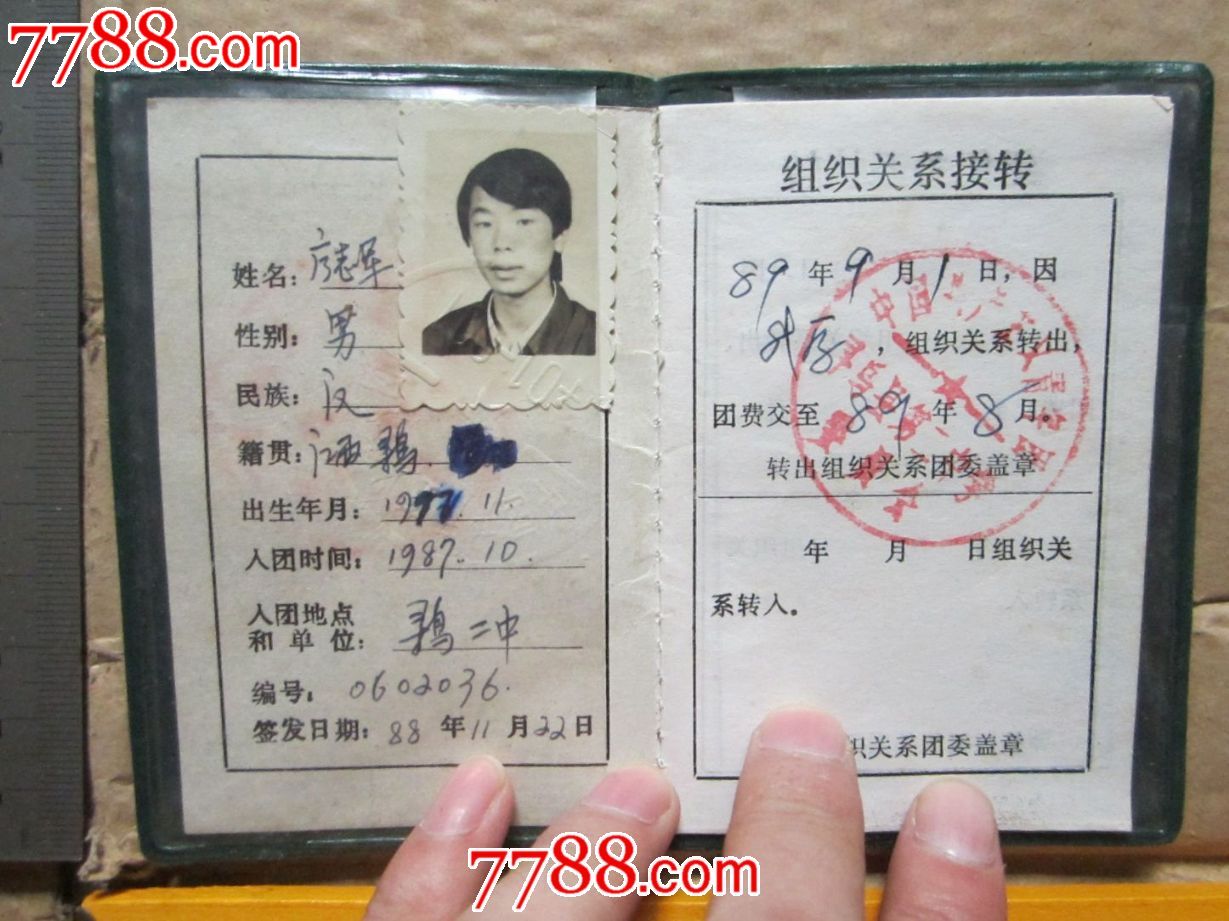 7788.com
姓名：志军
性别：男
民族：汉
籍贯：江西
出生年月：19 .11.
入团时间：1987.10.
入团地点
和单位：二中
编号：0602036.
签发日期：88年11月22日
组织关系接转
89年9月1日，因
升学，组织关系转出，
团费交至89年8月。
转出组织关系团委盖章
年 月 日组织关
系转入。
织关系团委盖章
中国共产主义青年团
7788.com